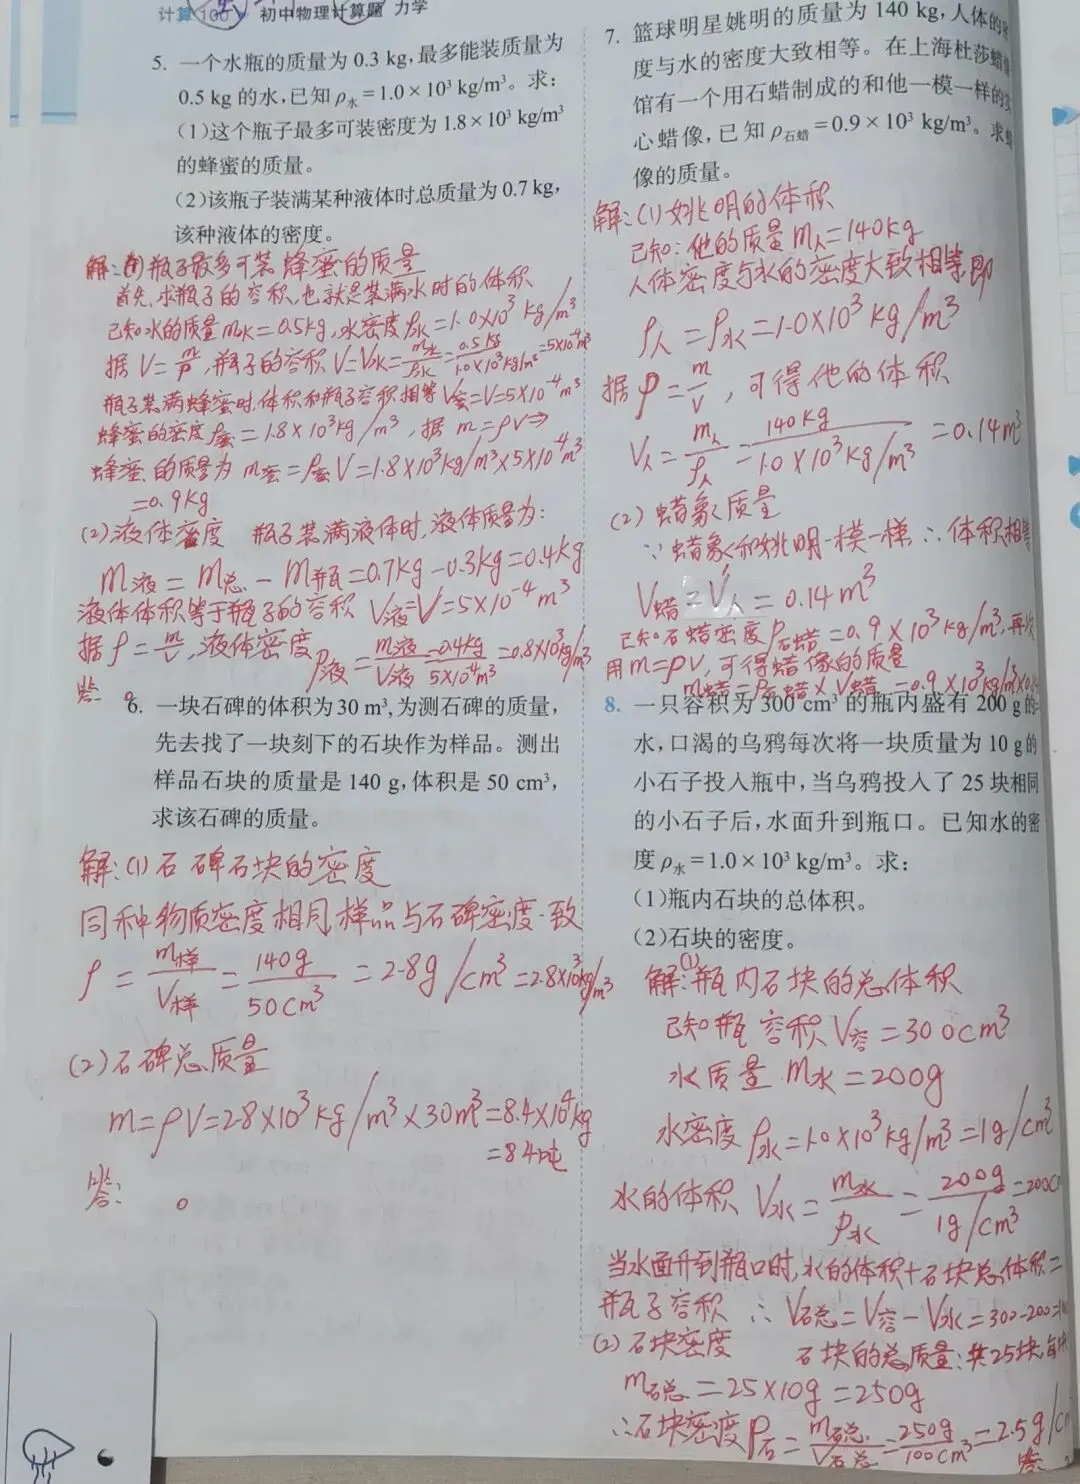 计算100 初中物理计算题 力学
5. 一个水瓶的质量为 0.3 kg,最多能装质量为
0.5 kg 的水,已知 ρ水=1.0×10³ kg/m³。求:
(1)这个瓶子最多可装密度为 1.8×10³ kg/m³
的蜂蜜的质量。
(2)该瓶子装满某种液体时总质量为 0.7 kg,
该种液体的密度。
解:(1)瓶子最多可装蜂蜜的质量
首先,求瓶子的容积,也就是装满水时的体积
已知水的质量m水=0.5kg,水密度ρ水=1.0×10³ kg/m³
据 V=m/ρ,瓶子的容积 V=V水=m水/ρ水=0.5kg/1.0×10³kg/m³=5×10⁻⁴m³
瓶子装满蜂蜜时,体积和瓶子容积相等V蜜=V=5×10⁻⁴m³
蜂蜜的密度ρ蜜=1.8×10³kg/m³,据 m=ρV⇒
蜂蜜的质量为 m蜜=ρ蜜V=1.8×10³kg/m³×5×10⁻⁴m³
=0.9kg
(2)液体密度 瓶子装满液体时,液体质量为:
m液=m总-m瓶=0.7kg-0.3kg=0.4kg
液体体积等于瓶子的容积 V液=V=5×10⁻⁴m³
据ρ=m/V,液体密度ρ液=m液/V液=0.4kg/5×10⁻⁴m³=0.8×10³kg/m³
答:
6. 一块石碑的体积为 30 m³,为测石碑的质量,
先去找了一块刻下的石块作为样品。测出
样品石块的质量是 140 g,体积是 50 cm³,
求该石碑的质量。
解:(1)石碑石块的密度
同种物质密度相同,样品与石碑密度一致
ρ=m样/V样=140g/50cm³=2.8g/cm³=2.8×10³kg/m³
(2)石碑总质量
m=ρV=2.8×10³kg/m³×30m³=8.4×10⁴kg
=84吨
答: 。
7. 篮球明星姚明的质量为 140 kg,人体的密
度与水的密度大致相等。在上海杜莎蜡像
馆有一个用石蜡制成的和他一模一样的实
心蜡像,已知 ρ石蜡=0.9×10³ kg/m³。求蜡
像的质量。
解:(1)姚明的体积
已知:他的质量m人=140kg
人体密度与水的密度大致相等即
ρ人=ρ水=1.0×10³kg/m³
据ρ=m/V,可得他的体积
V人=m人/ρ人=140kg/1.0×10³kg/m³=0.14m³
(2)蜡象质量
∵蜡象和姚明一模一样∴体积相等
V蜡=V人=0.14m³
已知石蜡密度ρ石蜡=0.9×10³kg/m³,再次
用m=ρV,可得蜡像的质量
m蜡=ρ石蜡×V蜡=0.9×10³kg/m³×0.14
8. 一只容积为 300 cm³ 的瓶内盛有 200 g 的
水,口渴的乌鸦每次将一块质量为 10 g 的
小石子投入瓶中,当乌鸦投入了 25 块相同
的小石子后,水面升到瓶口。已知水的密
度 ρ水=1.0×10³ kg/m³。求:
(1)瓶内石块的总体积。
(2)石块的密度。
解:(1)瓶内石块的总体积
已知瓶容积V容=300cm³
水质量m水=200g
水密度ρ水=1.0×10³kg/m³=1g/cm³
水的体积V水=m水/ρ水=200g/1g/cm³=200c
当水面升到瓶口时,水的体积+石块总体积=
瓶子容积 ∴V石总=V容-V水=300-200=1
(2)石块密度 石块的总质量:共25块,每块
m石总=25×10g=250g
∴石块密度ρ石=m石总/V石总=250g/100cm³=2.5g/c
答: